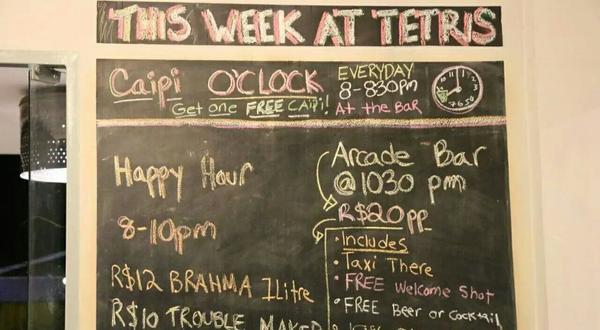 THIS WEEK AT TETRIS
Caipi O'CLOCK
Get one FREE CAIPI!
EVERYDAY
8-830pm
At the BAR
Happy Hour
8-10pm
R$12 BRAHMA 1Litre
R$10 TROUBLE MAKER
Arcade Bar
@1030 pm
R$20pp
• Includes
• Taxi There
• FREE Welcome Shot
• FREE Beer or Cocktail